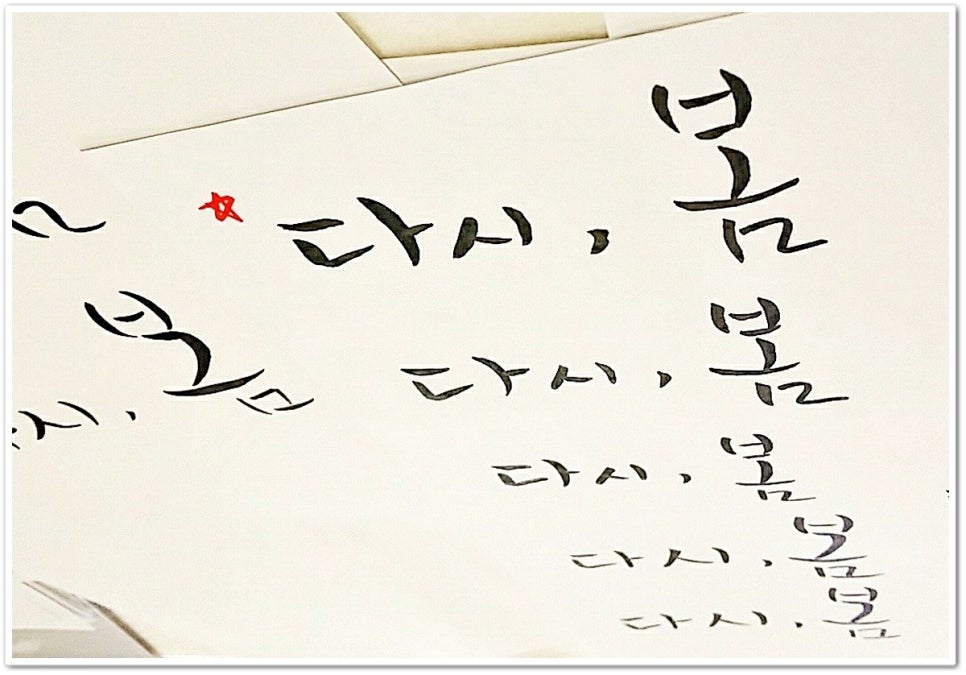 다시, 봄
다시, 봄
다시, 봄
다시, 봄
다시, 봄
시, 봄